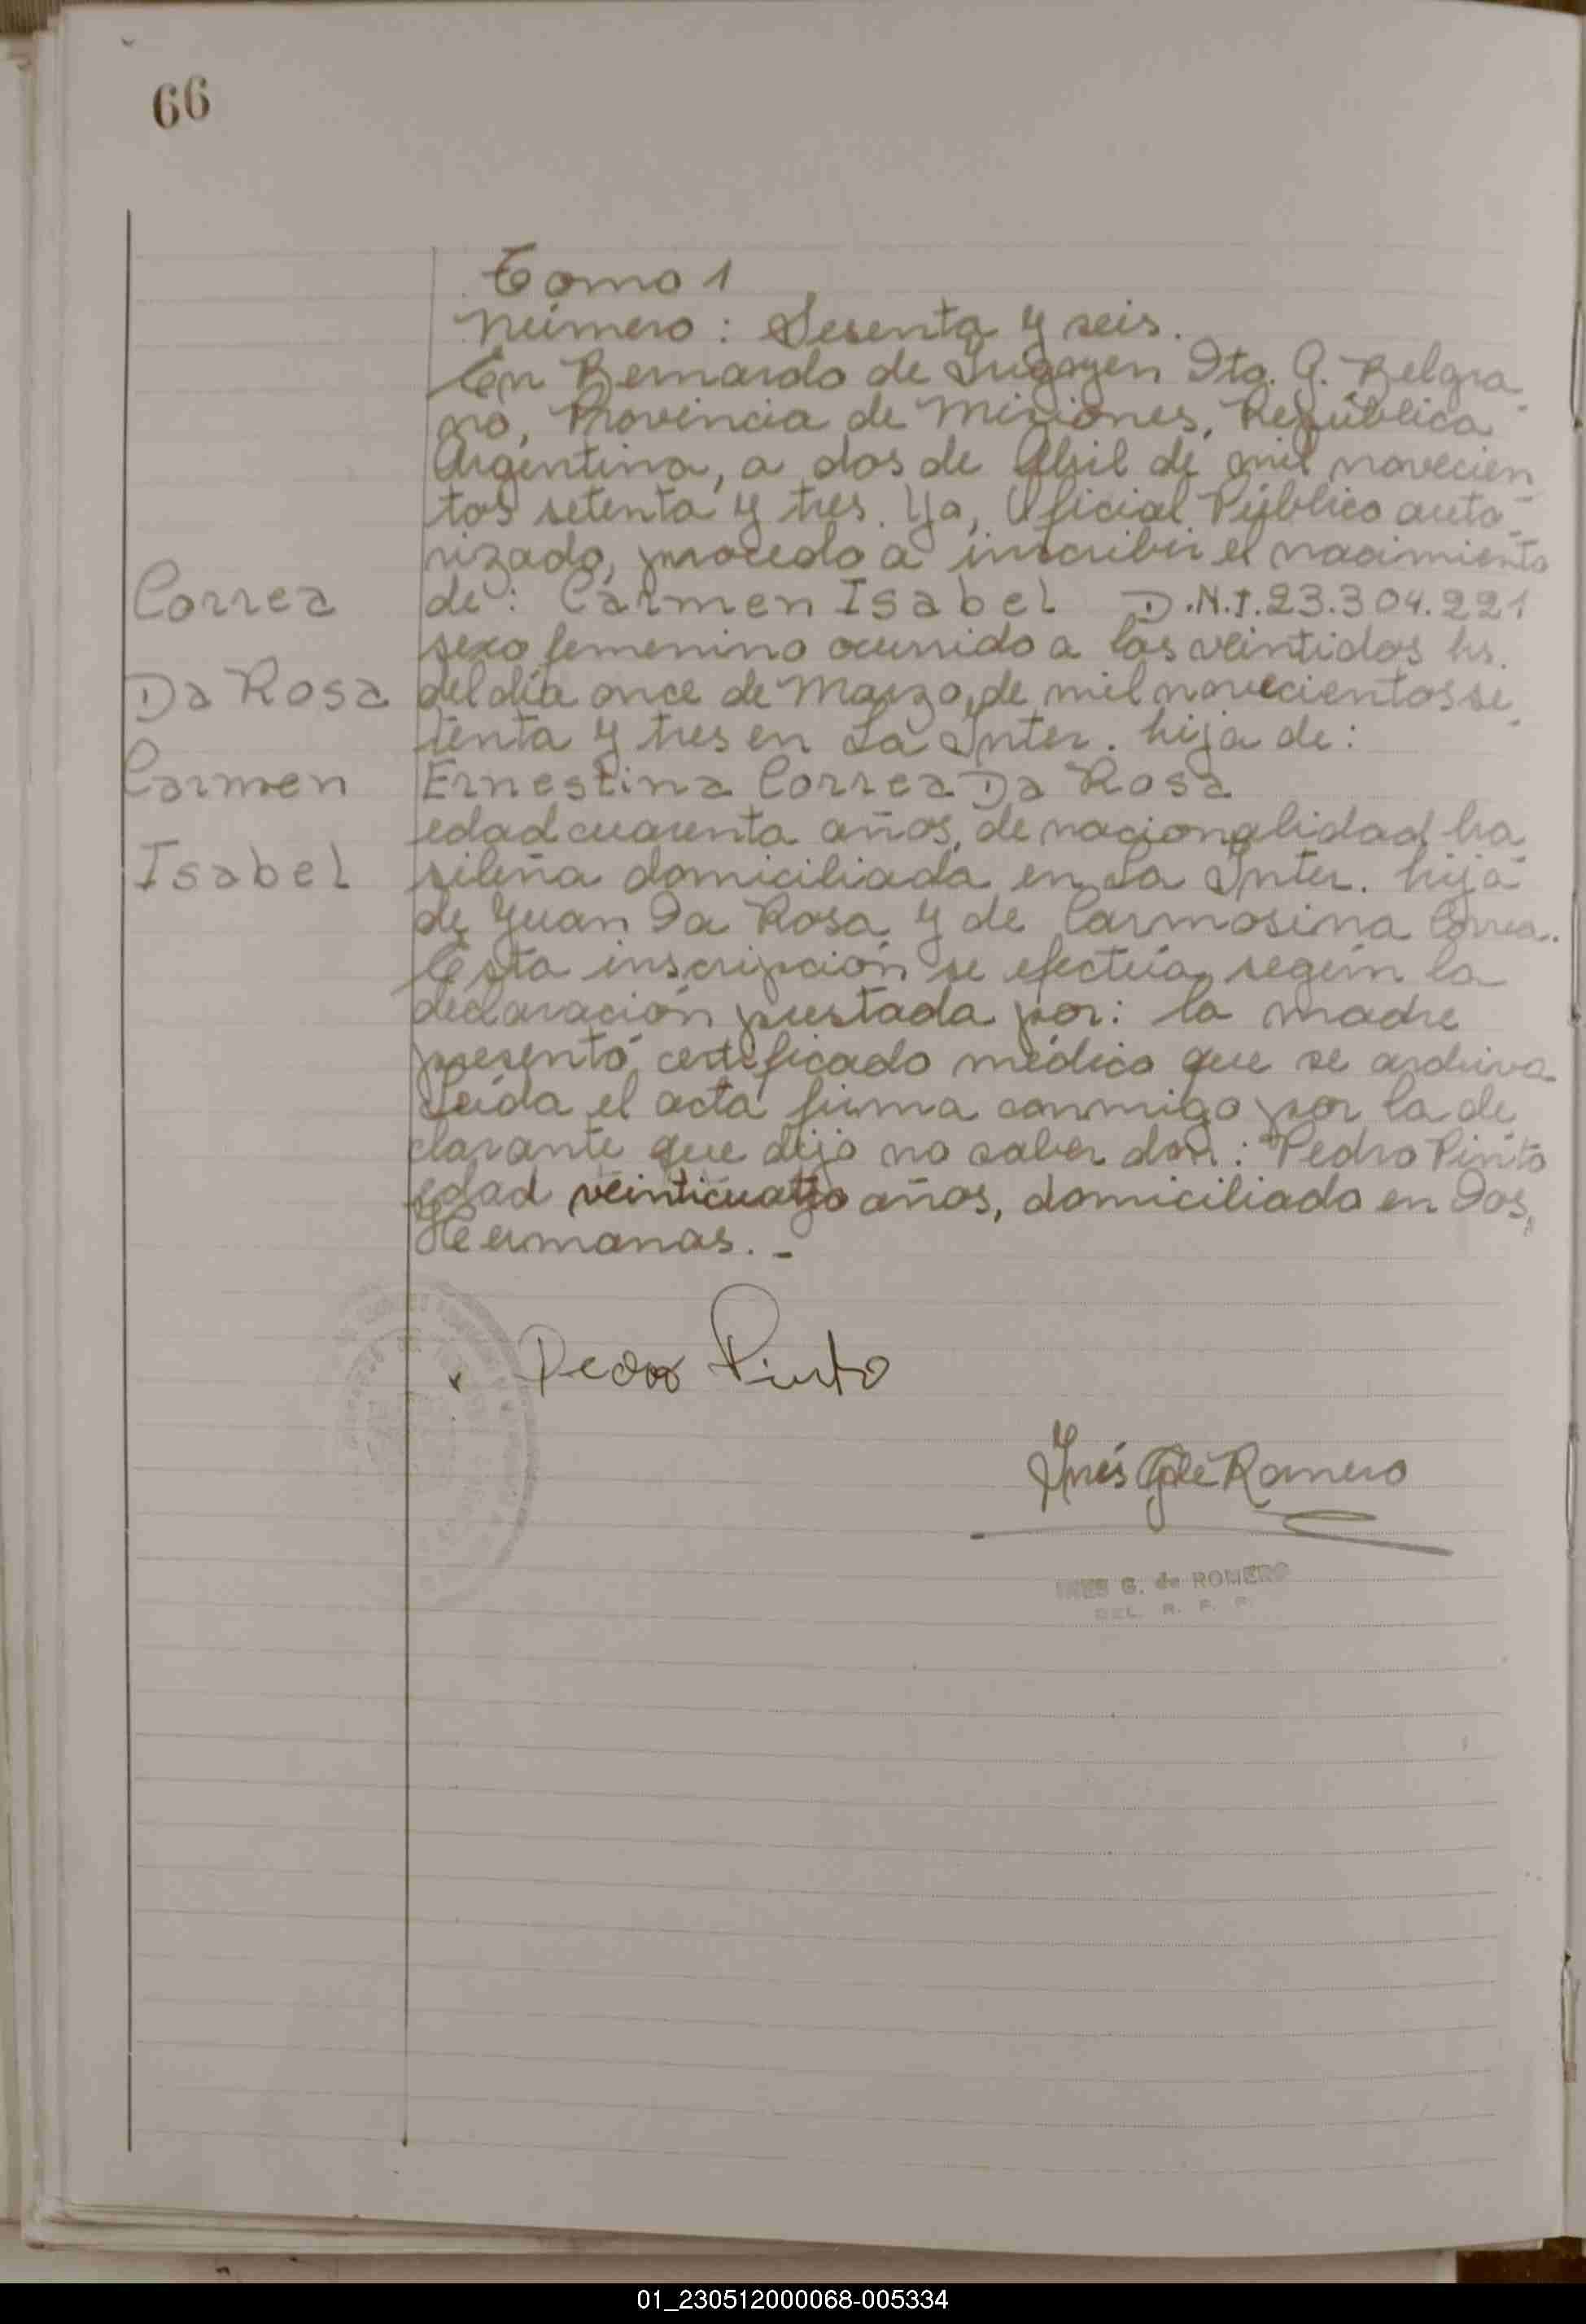 66
Tomo 1
Número: Sesenta y seis.
En Bernardo de Irigoyen Dto. G. Belgra-
no, Provincia de Misiones, República
Argentina, a dos de Abril de mil novecien-
tos setenta y tres. Yo, Oficial Público auto-
rizado, procedo a inscribir el nacimiento
Correa
de: Carmen Isabel D.N.I. 23.304.221
sexo femenino ocurrido a las veintidos hs.
Da Rosa
del día once de Marzo, de mil novecientos se-
tenta y tres en La Inter. hija de:
Carmen
Ernestina Correa Da Rosa
edad cuarenta años, de nacionalidad bra-
Isabel
sileña domiciliada en La Inter. hija
de Juan Da Rosa y de Carmosina Correa.
Esta inscripción se efectúa según la
declaración prestada por: la madre
presentó certificado médico que se archiva.
Leída el acta firma conmigo por la de-
clarante que dijo no saber don: Pedro Pinto
edad veinticuatro años, domiciliado en Dos
Hermanas. -
Pedro Pinto
Inés G de Romero
INES G. de ROMERO
DEL. R. P. P.
01_230512000068-005334